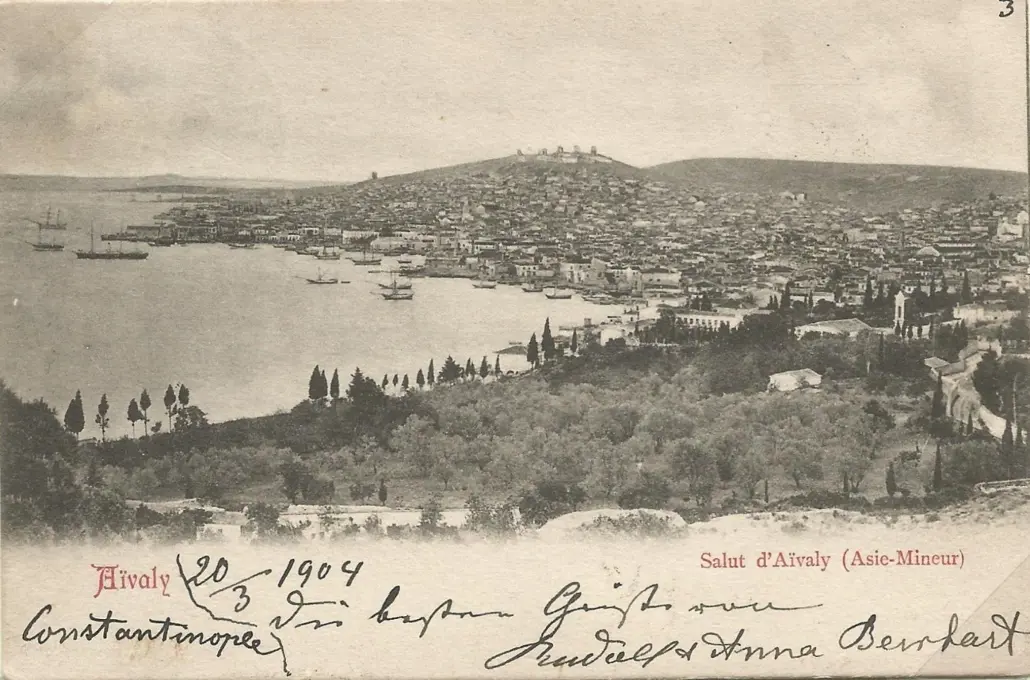 3
Salut d'Aïvaly (Asie-Mineur)
Aïvaly 20/3 1904
Constantinopel die besten Grüsse von
Rudolf & Anna Bernhart